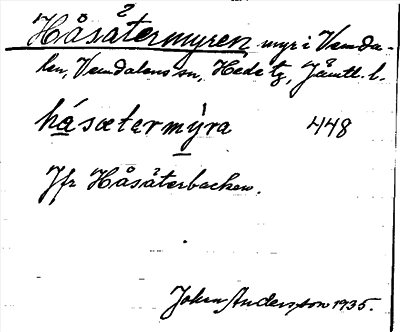 2
Håsåtermyren myr i Vemda-
len, Vemdalens sn, Hede tg, Jämtl. l.
håsætermỳra 448
Jfr Håsåterbacken.
Johan Andersson 1935.